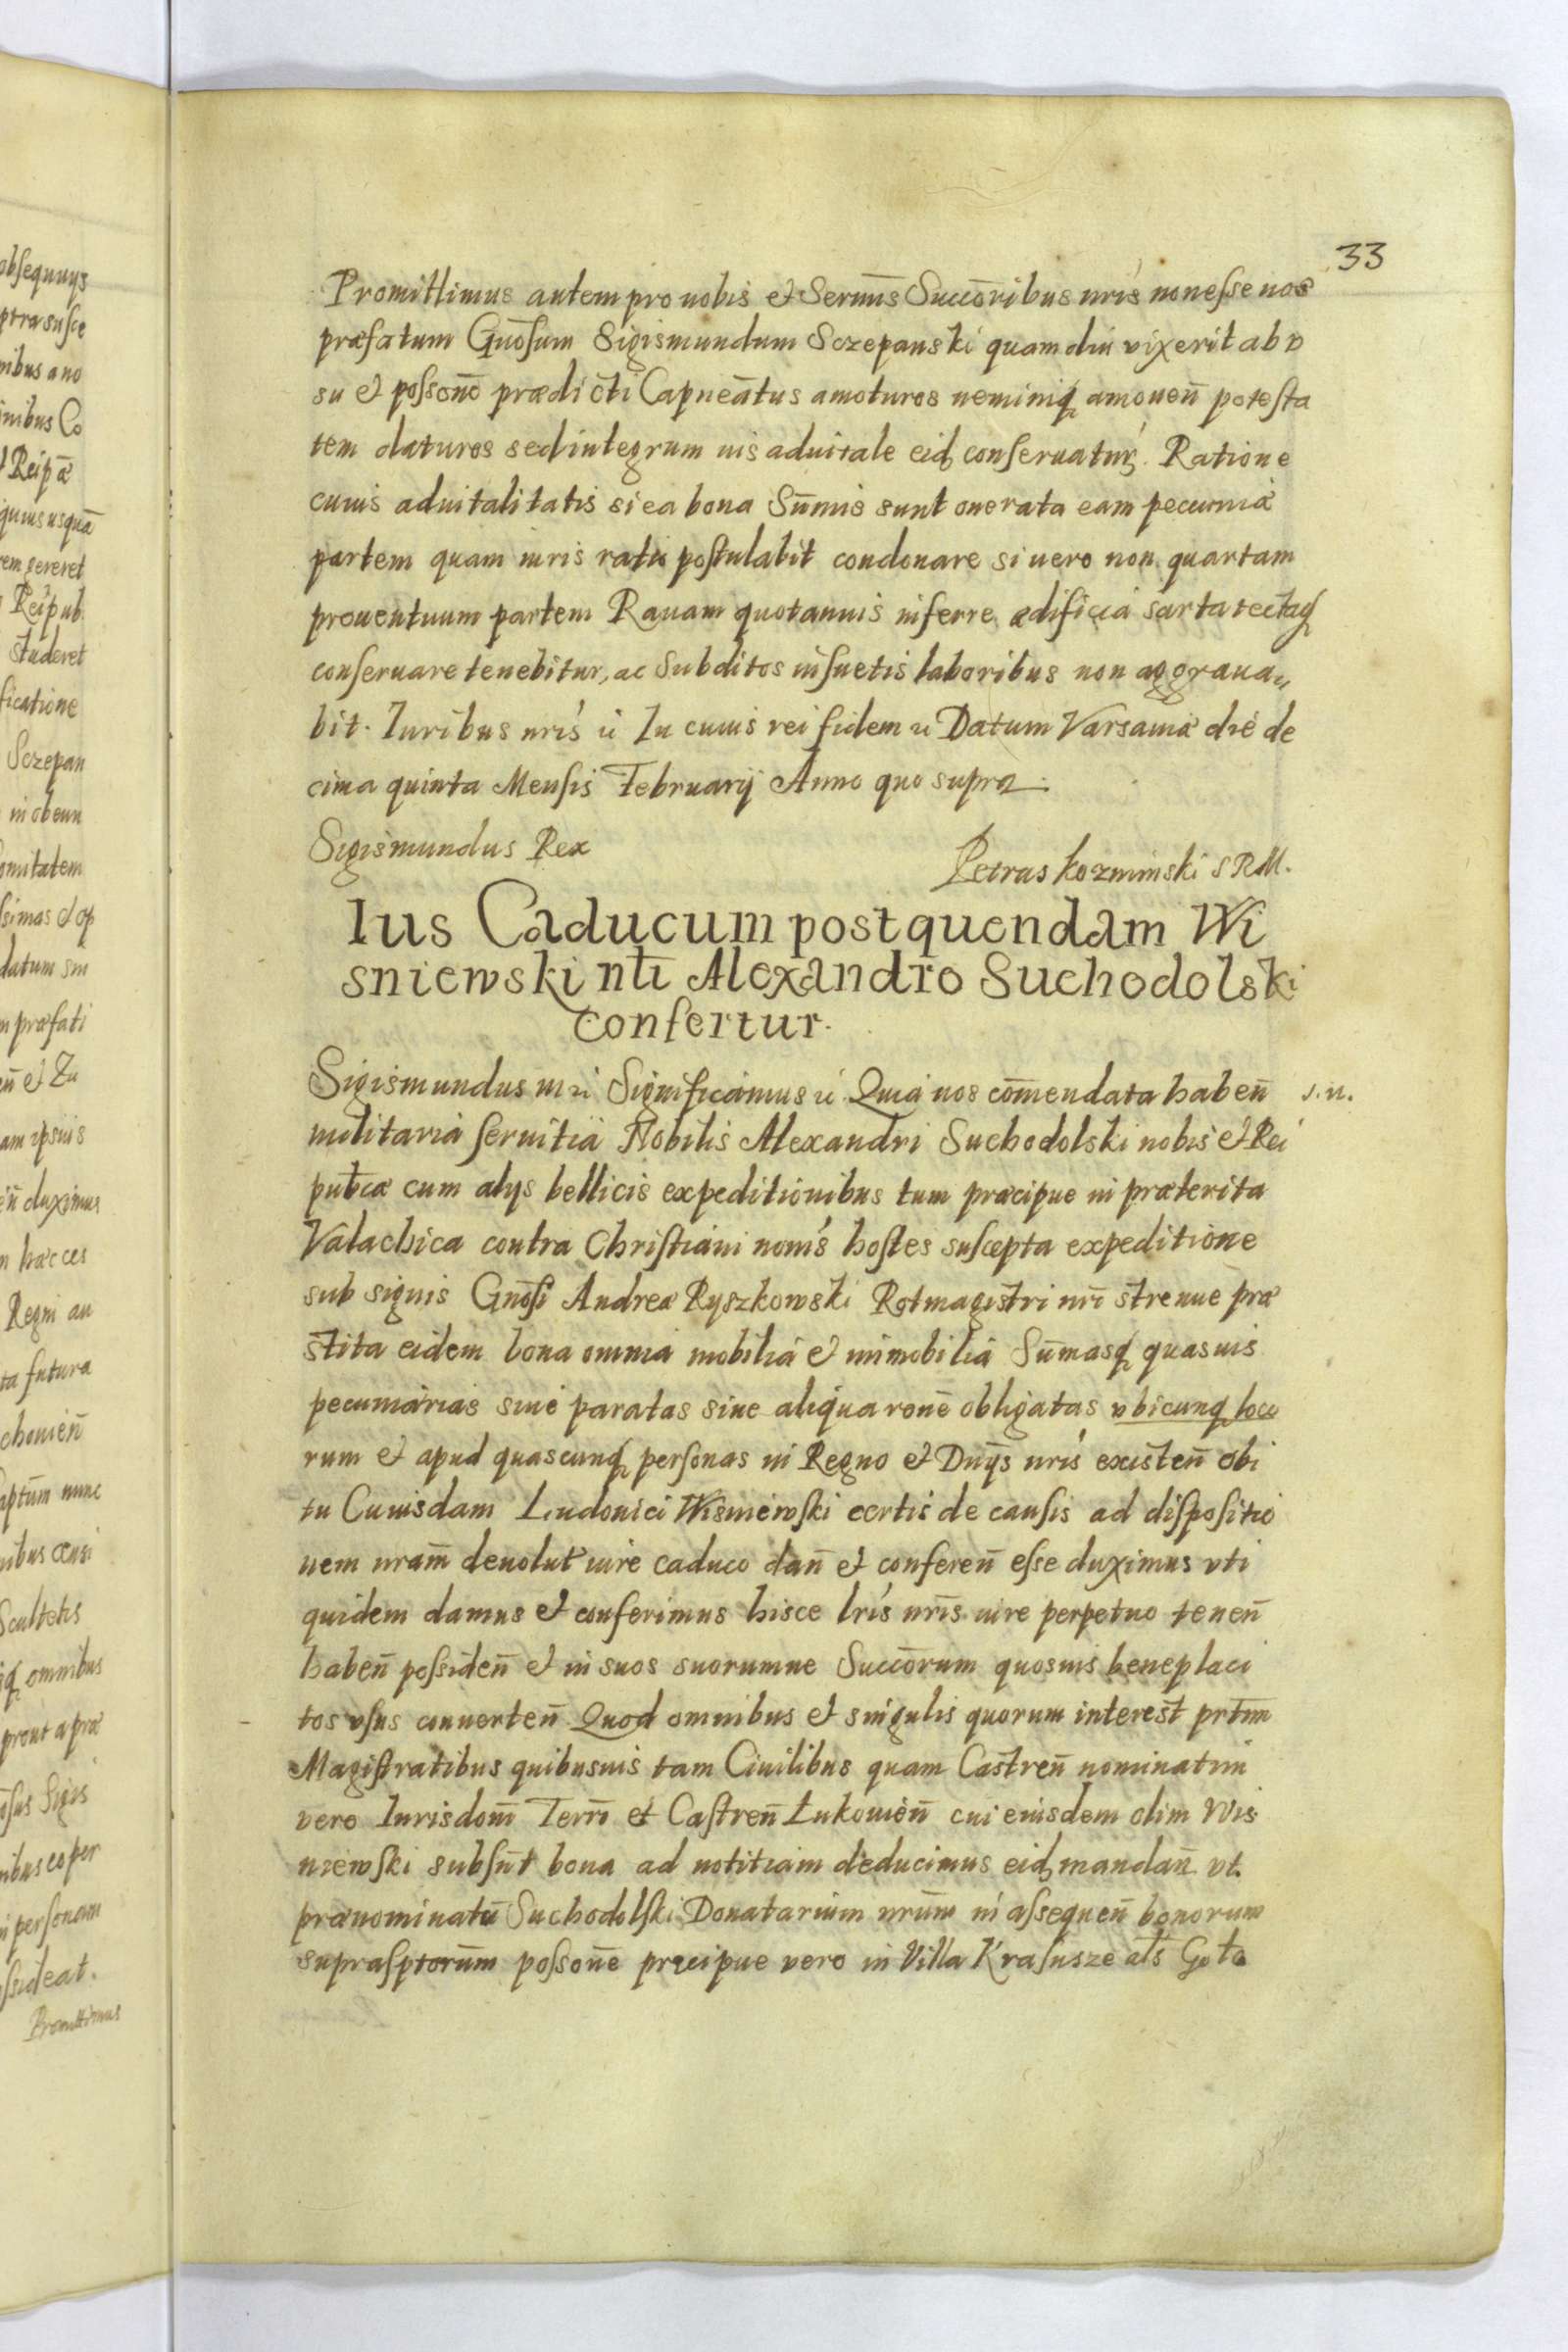 33
Promittimus autem pro nobis et Sermīs Succōribus nrīs non esse nos
præfatum Gnōsum Sigismundum Sczepanski quam diu vixerit ab v
su et possonē prædicti Capneātus amoturos neminiq amouen̄ potesta
tem daturos sed integrum ius aduitale eid conseruatur̄. Ratione
cuius aduitalitatis si ea bona Sum̄is sunt onerata eam pecuniæ
partem quam iuris ratio postulabit condonare si uero non quartam
prouentuum partem Rauam quotannis inferre ædificia sarta tectaq
conseruare tenebitur, ac subditos insuetis laboribus non aggraua„
bit. Iuribus nrīs ıı In cuius rei fidem ıı Datum Varsauiæ die de
cima quinta Mensis February Anno quo supra.
Sigismundus Rex
Petrus kozminski SRM.
Ius Caducum post quendam Wi
sniewski nłi Alexandro Suchodolski
confertur.
Sigismundus III ıı Significamus ıı Quia nos com̄endata haben̄
s.n.
militaria seruitia Nobilis Alexandri Suchodolski nobis et Rei
publcæ cum alys bellicis expeditionibus tum præcipue in præterita
Valachica contra Christiani nom̄s hostes suscepta expeditione
sub signis Gnōsi Andreæ Ryszkowski Rotmagistri nrī strenue præ
stita eidem bona omnia mobilia et immobilia Sum̄asq quasuis
pecuniarias siue paratas siue aliqua ronē obligatas vbicunq loco
rum et apud quascunq personas in Regno et Dnȳs nrīs existen̄ obi
tu Cuiusdam Ludouici Wisniewski certis de causis ad dispositio
nem nram̄ deuolut iure caduco dan̄ et conferen̄ esse duximus vti
quidem damus et conferimus hisce lrīs nrīs iure perpetuo tenen̄
haben̄ possiden̄ et in suos suorumue Succōrum quosuis beneplaci
tos vsus conuerten̄ Quod omnibus et singulis quorum interest prtim̄
Magistratibus quibusuis tam Ciuilibus quam Castren̄ nominatim
vero Iurisdom̄ Terrī et Castren̄ Łukouien̄ cui eiusdem olim Wis
niewski subsūt bona ad notitiam deducimus eid mandan̄ vt
prænominatū Suchodolski Donatarium nrūm in assequen̄ bonorum
suprasptorūm possonē præcipue vero in Villa Krasusze als Goło